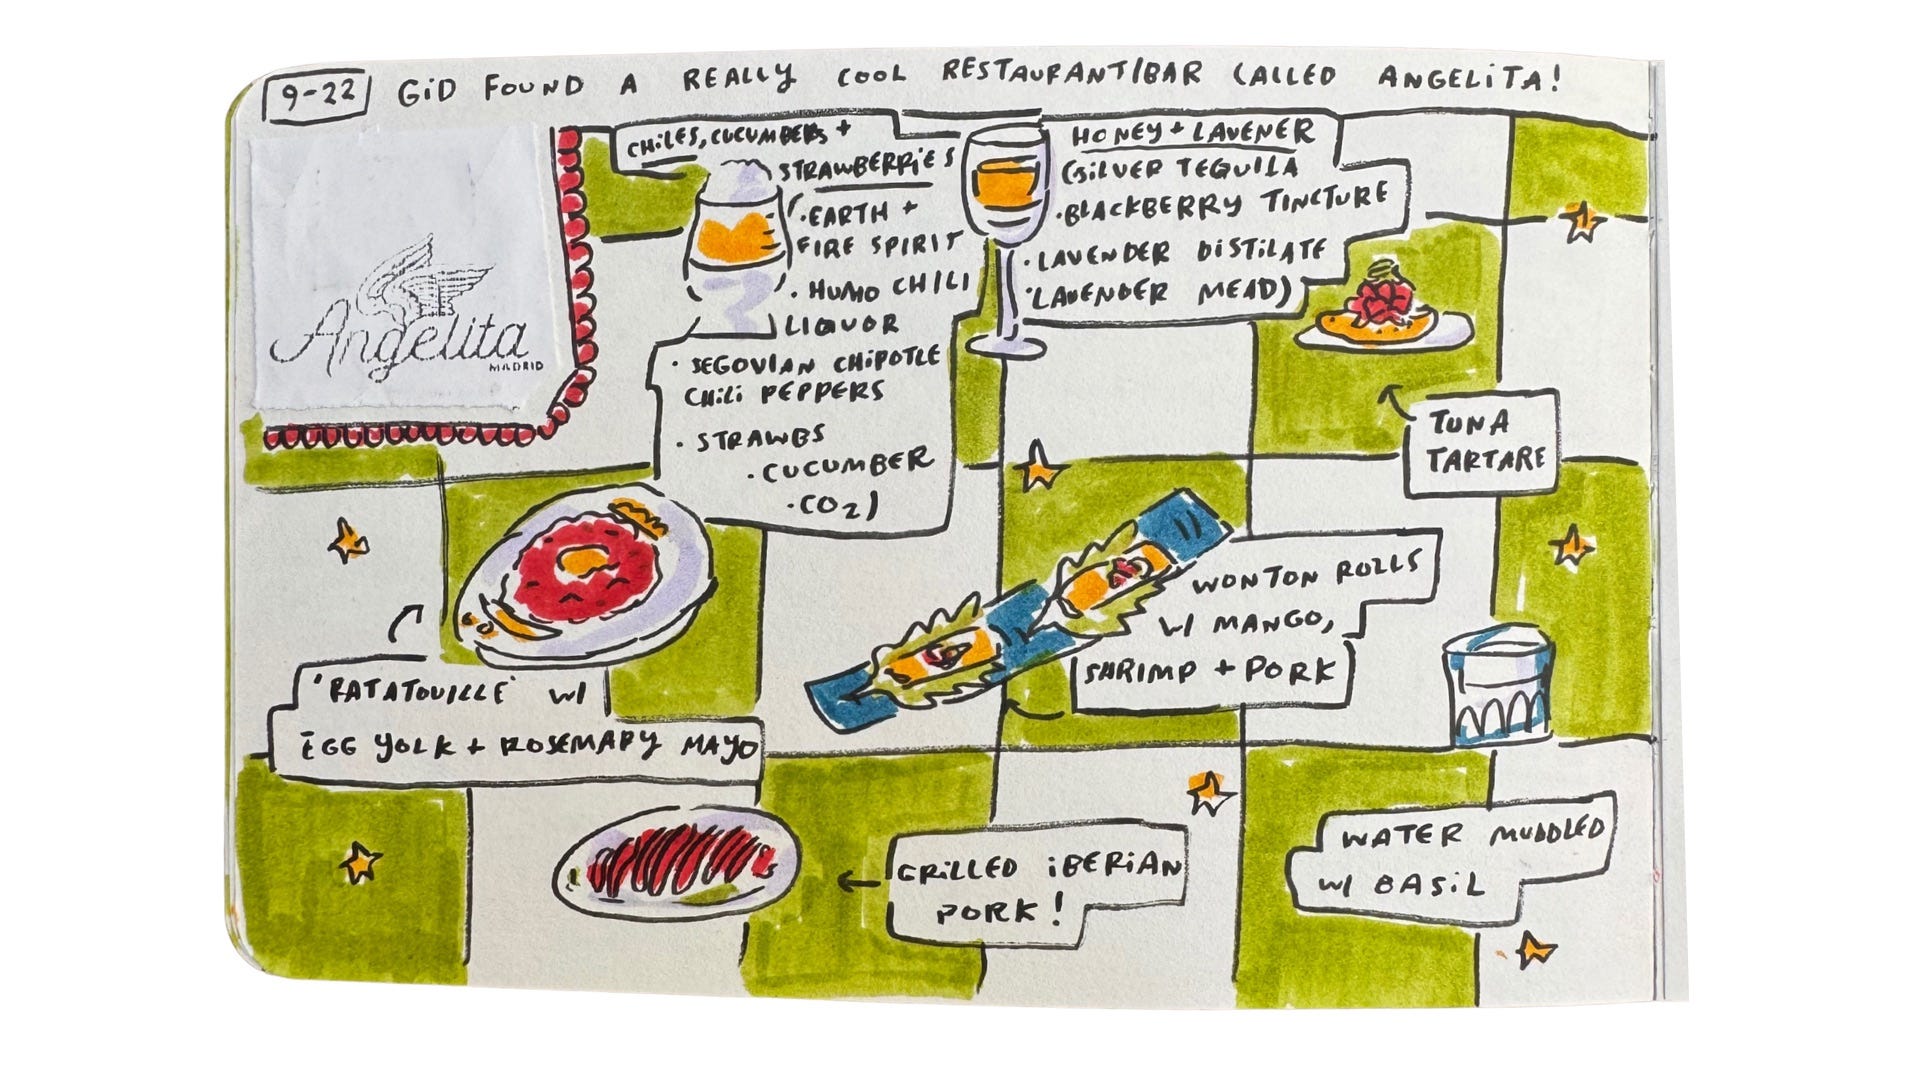 9-22 GiD FOUND A REALLY COOL RESTAURANT/BAR CALLED ANGELiTA!
Angelita
MADRID
CHiLES, CUCUMBERS +
STRAWBERRiES
·EARTH +
FIRE SPIRIT
·HUMO CHILI
LIQUOR
·SEGOVIAN CHiPOTLE
CHiLi PEPPERS
·STRAWBS
·CUCUMBER
·CO2)
HONEY + LAVENER
(SiLVER TEQUILA
·BLACKBERRY TINCTURE
·LAVENDER DISTiLATE
·LAVENDER MEAD)
TUNA
TARTARE
'RATATOUILLE' W/
EGG YOLK + ROSEMARY MAYO
WONTON ROLLS
W/ MANGO,
SHRIMP + PORK
GRiLLED iBERiAN
PORK!
WATER MUDDLED
W/ BASiL